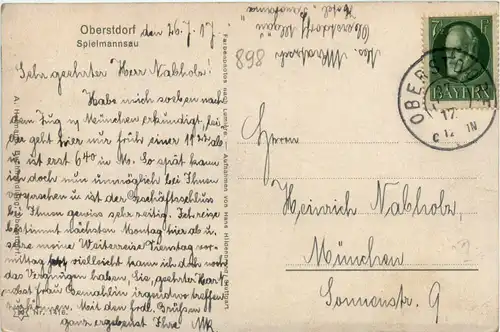 Oberstdorf
Spielmannsau
den 26./7. 17.
Sehr geehrter Herr Nabholz!
Habe mich soeben nach
dem Zug n. München erkundigt, lei-
der geht hier nur früh einer 11 ab
u. ist erst 6 40 in Mü. So spät kann
ich doch nun unmöglich bei Ihnen
vorsprechen u. ist der Geschäftsschluss
bei Ihnen gewiss sehr zeitig. Ich reise
bestimmt nächsten Montag hier ab u.
meine Weiterreise Dienstag vor-
mittag, vielleicht kann ich da noch
das Vergnügen haben, Sie, geehrter Herr
nebst Frau Gemahlin irgendwo treffen
zu können. Mit den frdl. Grüßen
ganz ergebenst Ihre MK
Nr. 1416.
Oberstdorf Allgäu
898
Farbenphoto nach Lumière - Aufnahmen von Hans Hildenbrand, Stuttgart
7 PF
BAYERN
OBERSTDORF
17
Herrn
Heinrich Nabholz,
München
Sonnenstr. 9